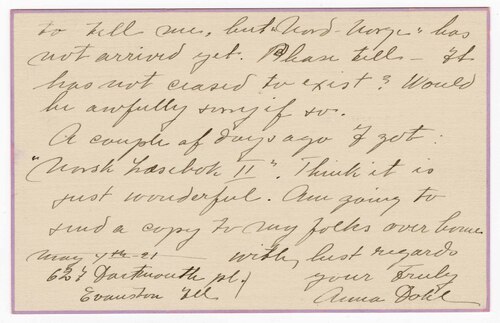 to tell me, but "Nord-Norge" has
not arrived yet. Please tell - It
has not ceased to exist? Would
be awfully sorry if so.
A couple of days ago I got
"Norsk Læsebok II". Think it is
just wonderful. Am going to
send a copy to my folks over home.
May 7th-21 with best regards
Dartmouth pl. yours truly
Evanston Ill Anna Dahl